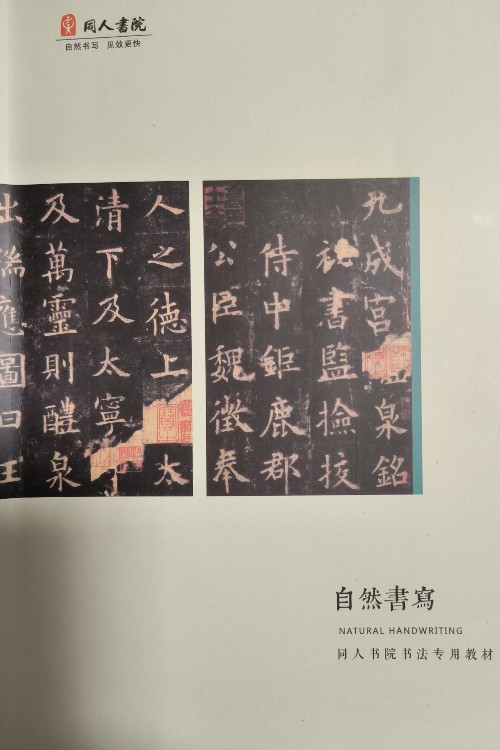 同人書院
自然书写 见效更快
九成宮泉銘
秘書監撿挍
侍中鉅鹿郡
公臣魏徵奉
人之德上太
清下及太寧
及萬靈則醴泉
出瑞應圖曰王
自然書寫
NATURAL HANDWRITING
同人书院书法专用教材